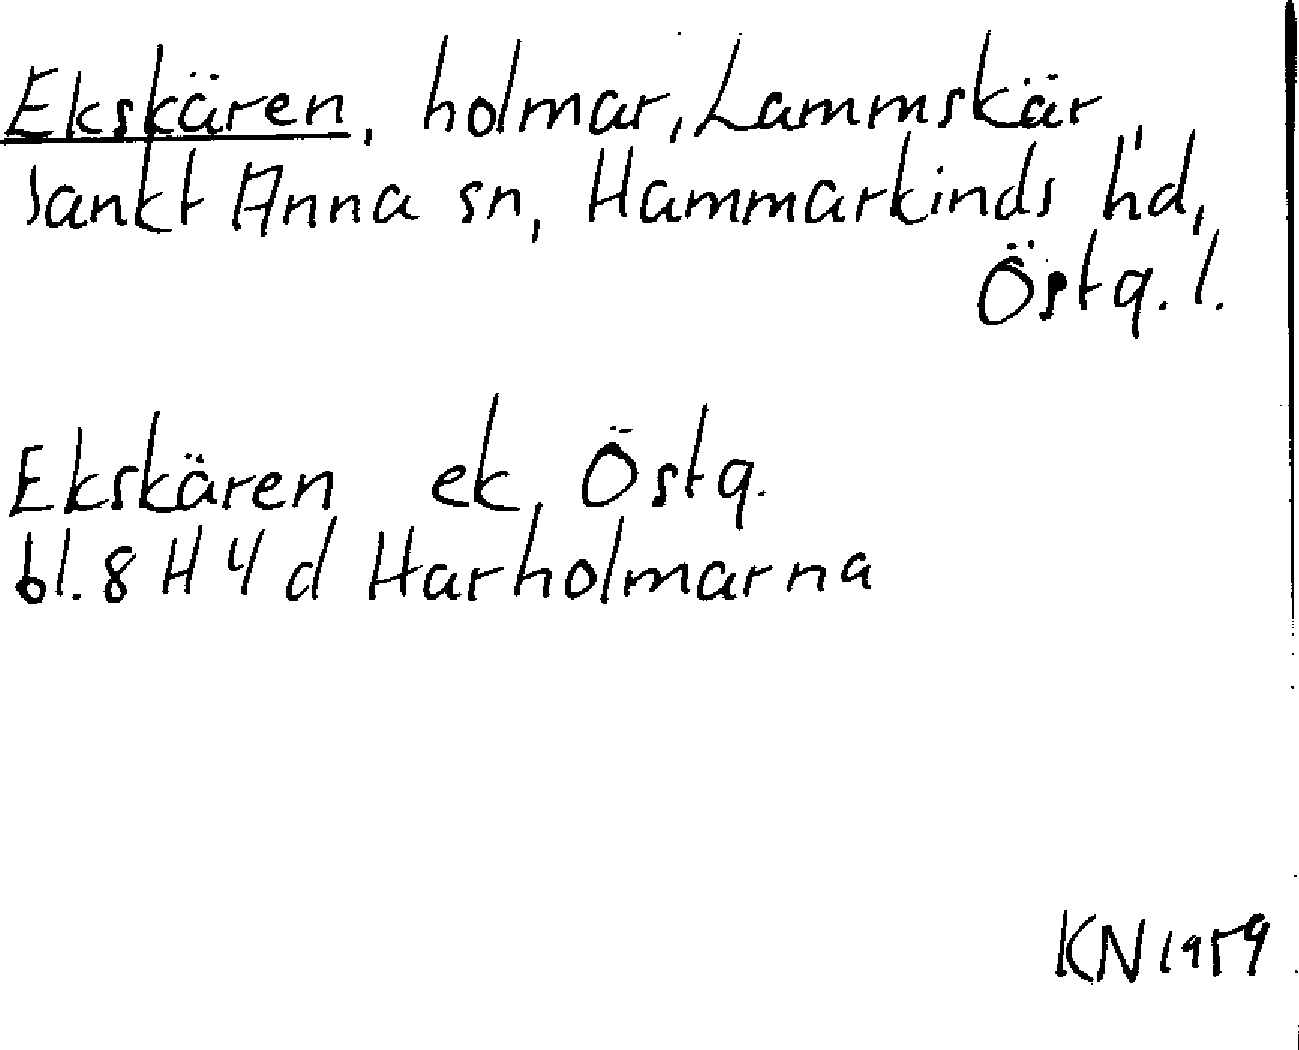 Ekskären, holmar, Lammskär,
Sankt Anna sn, Hammarkinds hd,
Östg. l.
Ekskären ek, Östg.
bl. 8 H 4 d Harholmarna
KN 1959